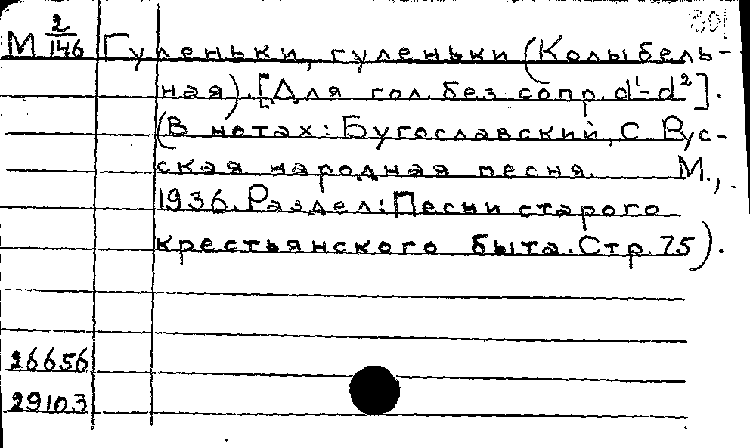 801
М 2/146 Гуленьки, гуленьки (Колыбель-
ная). [Для гол. без сопр. d¹-d²].
(В нотах: Бугославский, С Рус-
ская народная песня. М.,
1936. Раздел: Песни старого
крестьянского быта. Стр. 75).
26656
29103